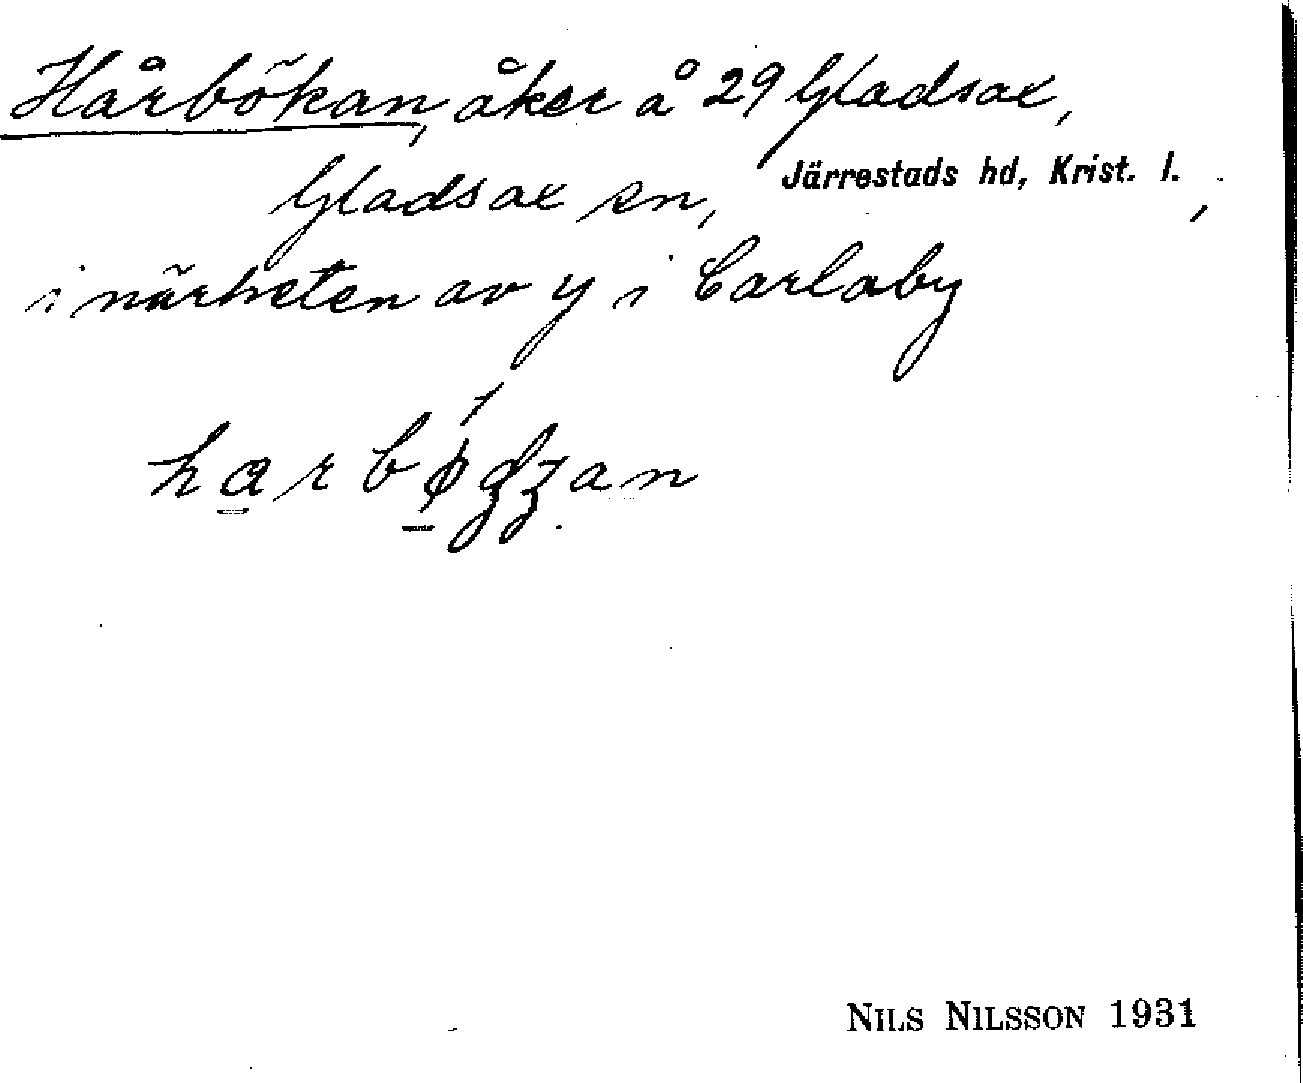 Hårbökan, åker å 29 Gladsax,
Gladsax sn, Järrestads hd, Krist. l. ,
i närheten av y i Carlaby
NILS NILSSON 1931